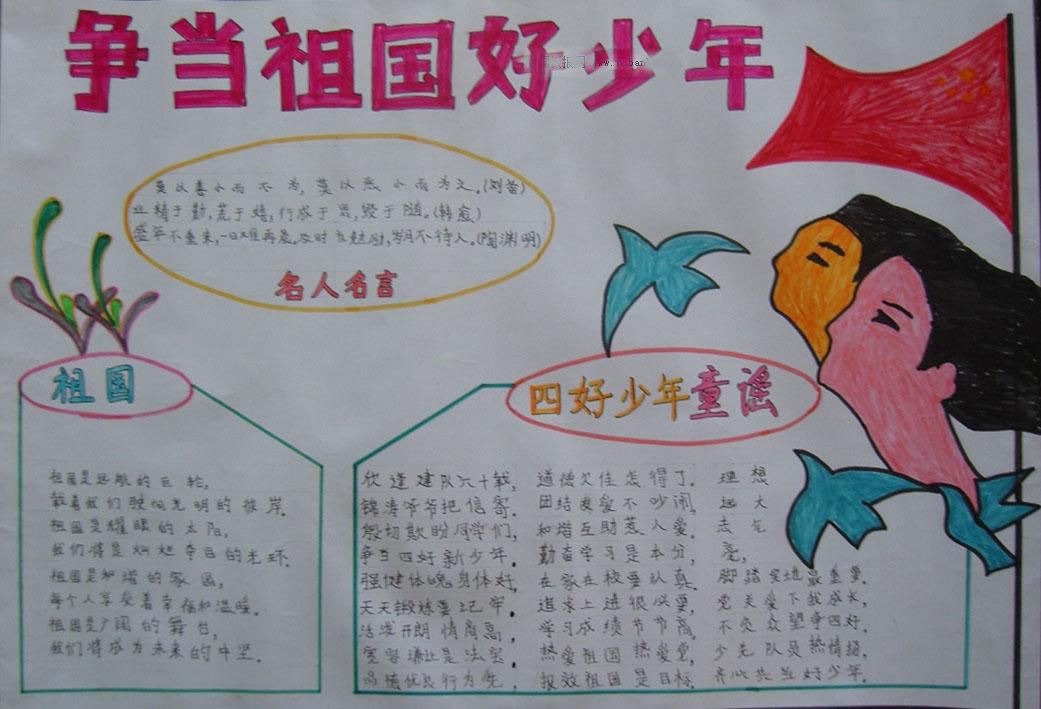 争当祖国好少年
莫以善小而不为，莫以恶小而为之。(刘备)
业精于勤，荒于嬉，行成于思，毁于随。(韩愈)
盛年不重来，一日难再晨。及时当勉励，岁月不待人。(陶渊明)
名人名言
祖国
祖国是远航的巨轮，
载着我们驶向光明的彼岸。
祖国是耀眼的太阳，
我们将是灿烂夺目的光环.
祖国是和谐的家园，
每个人享受着幸福和温暖。
祖国是广阔的舞台，
我们将成为未来的中坚。
四好少年童谣
欣逢建队六十载，
锦涛爷爷把信寄。
殷切欺盼同学们，
争当四好新少年。
强健体魄身体好，
天天锻炼要记牢。
活泼开朗情商高，
宽容谦让是法宝。
品德优良行为先，
道德欠佳怎得了。
团结友爱不吵闹，
和谐互助惹人爱。
勤奋学习是本分，
在家在校要认真。
追求上进很必要，
学习成绩节节高。
热爱祖国热爱党，
报效祖国是目标。
理想
远大
志气
高，
脚踏实地最重要。
党关爱下我成长，
不负众望争四好。
少先队员热情扬，
齐心共当好少年。